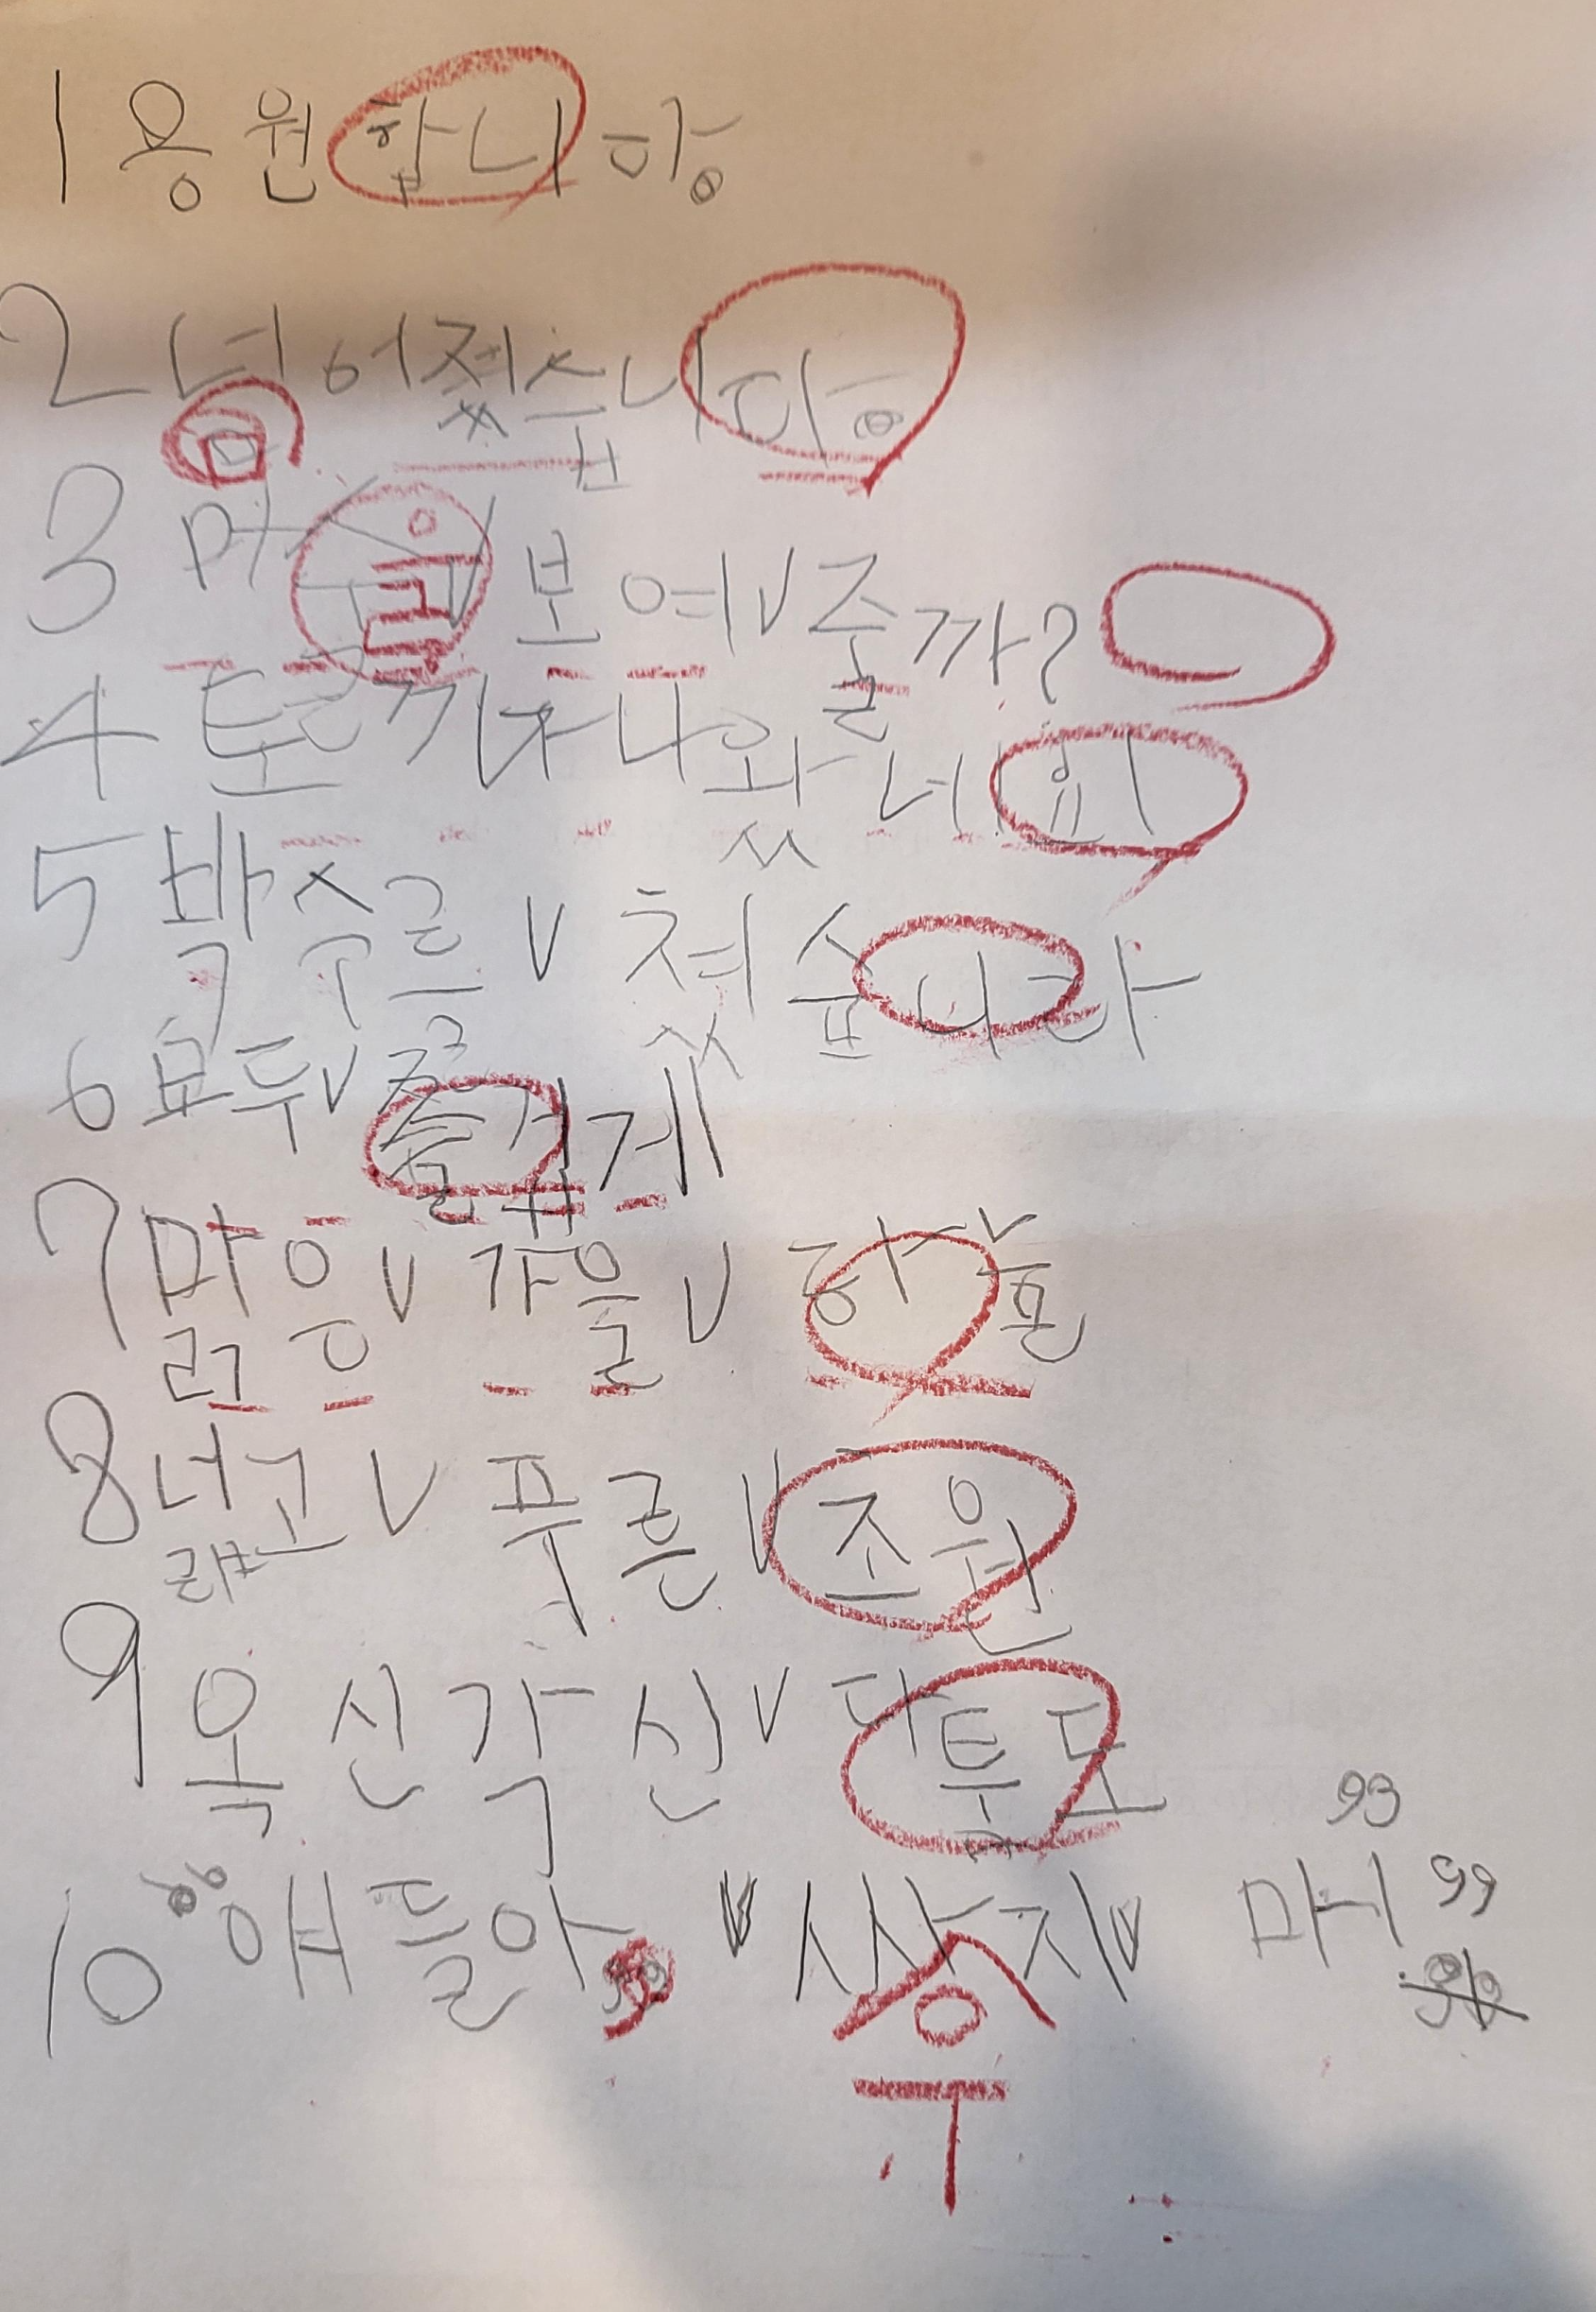 1 응원합니다.
2 넘어졌습니다.
3 마술∨보여∨줄까?
4 토끼가 나왔네요
5 박수를∨쳤습니다
6 모두∨즐겁게
7 맑은∨가을∨하늘
8 넓고∨푸른∨초원
9 옥신각신∨다투도
10 "얘들아, ∨싸우지∨마"
우